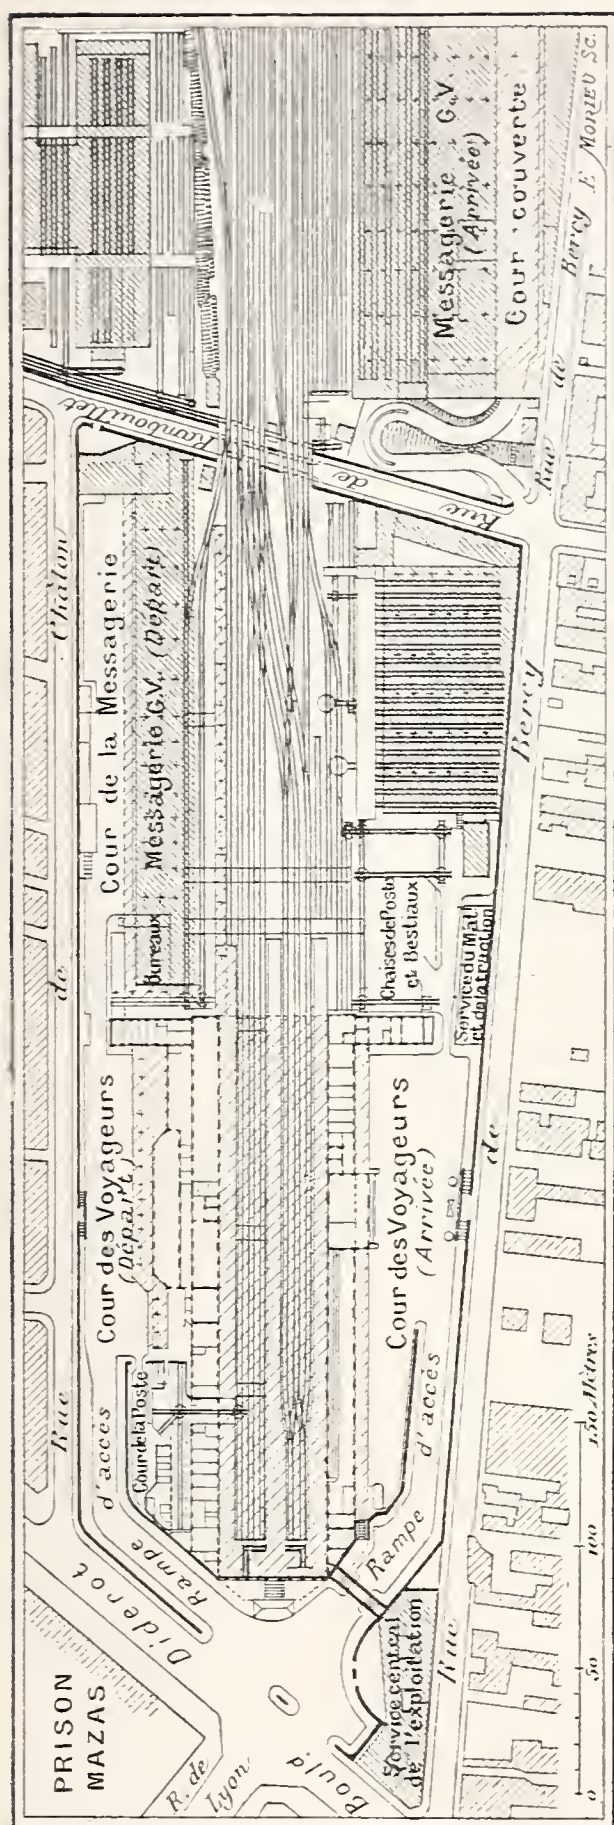 PRISON
MAZAS
R. de
Lyon
Bould
Diderot
Rue
de
Châlon
Rampe
d'accès
Cour de la Poste
Cour des Voyageurs
(Départ)
Bureaux
Cour de la Messagerie
Messagerie G.V. (Départ)
Rue
de
Rambouillet
Messagerie G.V.
(Arrivée)
Cour couverte
Chaises de Poste
et Bestiaux
Service du Mat.l
et de la truction
Cour des Voyageurs
(Arrivée)
Rampe
d'accès
Service central
de l'exploitation
Rue
de
Bercy
Rue
de
Bercy
E MORIEU SC.
0
50
100
150 Mètres